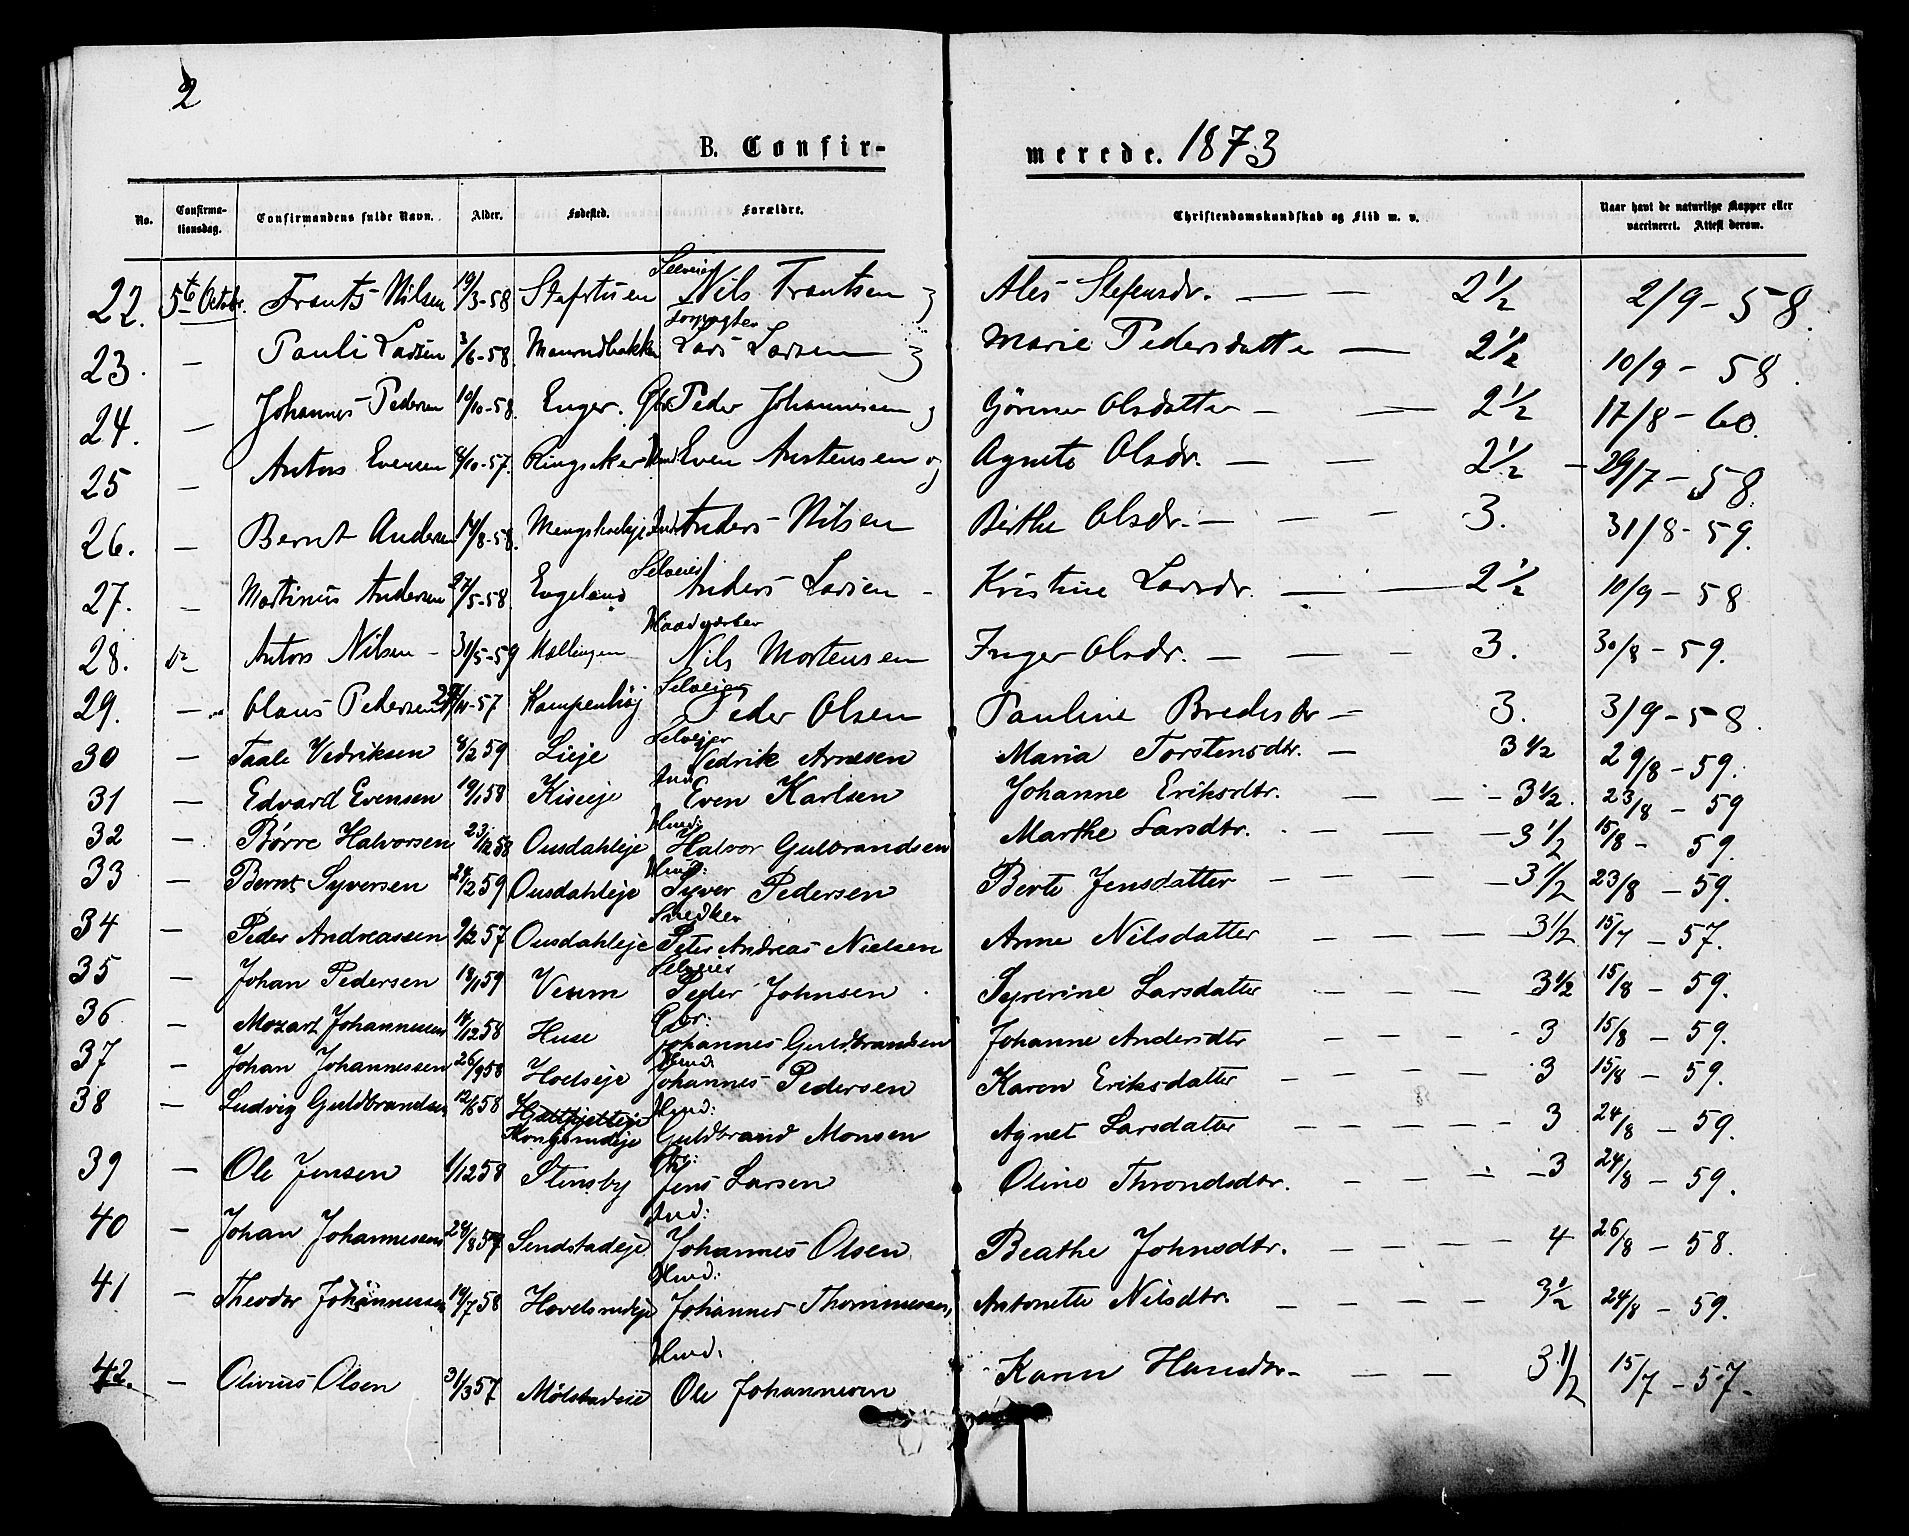 2
B. Confir-
merede. 1873
No. Confirma-tionsdag. Confirmandens fulde Navn. Alder. Fødested. Forældre. Christendomskundskab og Flid m. v. Naar havt de naturlige Kopper eller vaccineret. Attest derom.
Selveier
22. 5te Octobr. Frants Nilsen 19/3-58 Stefstuen Nils Frantsen og Ales Stefensdr. — — 2½ 2/9-58.
Forpagter
23. — Pauli Larsen 3/6-58. Lars Larsen og Marie Pedersdatter — 2½ 10/9-58.
24. — Johannes Pedersen 10/10-58. Enger. Gbr. Peder Johannesen og Olsdatter — — 2½ 17/8-60.
25 — Anton Evensen 8/10-57. Ringsaker Even Austensen og Agnete Olsdr. — — 2½ - 29/7-58.
26. — Bernt Andersen 17/8-58. Anders Nilsen Birthe Olsdr. — — — 3. 31/8-59.
Selveier
27. — Martinus Andersen 27/5-58. Engeland Anders Larsen - Kristine Larsdr. — — 2½ 10/9-58
Haandværker
28. do Anton Nilsen - 31/5-59 Mællingen Nils Mortensen Inger Olsdr. — — — 3. 30/8-59.
Selveier
29. — Olaus Pedersen 29/11-57 Kampenhøj Peder Olsen Pauline Bredesdr — 3. 3/9-58.
Selveier
30 — Taale Vedriksen 8/2 59 Lieje Vedrik Arnesen Maria Torstensdtr. — 3½ 29/8-59.
Ind
31 — Edvard Evensen 19/1 58 Kiseije Even Karlsen Johanne Eriksdtr. — — - 3½. 23/8-59
Hmd:
32 — Børre Halvorsen 23/12 58 Ousdahleje Halvor Gulbrandsen Marthe Larsdtr. - — — — 3½ 15/8- 59.
Hmd:
33 — Bernt Syversen 24/2 59 Ousdahleje Syver Pedersen Berte Jensdatter - — — — 3½ 23/8-59.
Snedker
34 — Peder Andreassen 9/2 57 Ousdahleje Peter Andreas Nielsen Anne Nilsdatter — — — 3½ 15/7-57.
Selveier
35 — Johan Pedersen 18/1 59 Veum Peder Johnsen. Syverine Larsdatter 3½ 15/8-59.
Gbr:
36 — Mozart Johannessen 14/12 58 Huse Johannes Guldbrandsen Johanne Andersdtr — — — - 3 15/8-59.
Hmd.
37 — Johan Johannessen 26/9 58 Hoelseje Johannes Pedersen Karen Eriksdatter — — — — 3 15/8-59.
Hmd:
38 — Ludvig Guldbrandsen 12/6 58 Kongsrudeje Guldbrand Monsen Agnet Larsdatter — — — — 3 24/8-59.
39 — Ole Jensen 1/12 58 Stensby Jens Larsen Oline Throndsdtr. — — - - 3 24/8-59.
Ind:
40 — Johan Johannessen 28/8 57 Sendstadeje Johannes Olsen Beathe Johnsdtr. — — — — 4 26/8-58.
Hmd:
41 — Theodor Johannessen 19/7 58 Hovelsrudeje Johannes Thommesen, Antonette Nilsdtr. — — — — 3½ 24/8-59.
Hmd.
42. — Olivius Olsen 31/3 57 Mølstadeie Ole Johannesen Karen Hansdtr- — — 3½ 15/7-57-